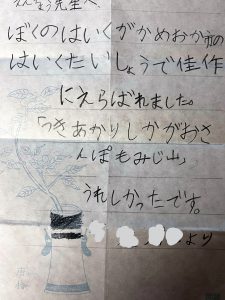 えんどう先生へ
ぼくのはいくがかめおか市の
はいくたいしょうで佳作
にえらばれました。
「つきあかりしかがおさ
んぽもみじ山」
うれしかったです。
より